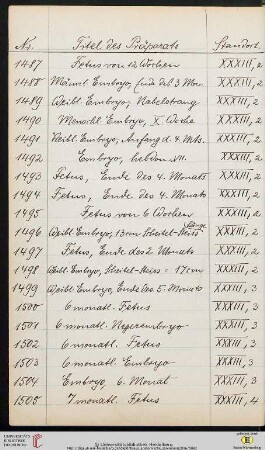 Nr. Titel des Präparats Standort.
1487 Fetus von 12 Wochen XXXIII, 2
1488 Männl. Embryo, Ende des 3. Mon. XXXIII, 2
1489 Weibl. Embryo, Nabelstrang XXXIII, 2
1490 Menschl. Embryo, X. Woche XXXIII, 2
1491 Weibl. Embryo, Anfang d. 4. Mts. XXXIII, 2
1492 Embryo, XXXIII, 2
1493 Fetus, Ende des 4. Monats XXXIII, 2
1494 Fetus, Ende des 4. Monats XXXIII, 2
1495 Fetus von 6 Wochen XXXIII, 2
1496 Weibl. Embryo, 13 cm Scheitel-Steiss Länge XXXIII, 2
1497 Fetus, Ende des 2 Monats XXXIII, 2
1498 Weibl. Embryo, Scheitel-Steiss = 17 cm XXXIII, 2
1499 Weibl. Embryo, Ende des 5. Monats XXXIII, 3
1500 6 monatl. Fetus XXXIII, 3
1501 6 monatl. Negerembryo XXXIII, 3
1502 6 monatl. Fetus XXXIII, 3
1503 6 monatl. Embryo XXXIII, 3
1504 Embryo, 6. Monat XXXIII, 3
1505 7 monatl. Fetus XXXIII, 4
UNIVERSITÄTS-
BIBLIOTHEK
HEIDELBERG
© Universitätsbibliothek Heidelberg